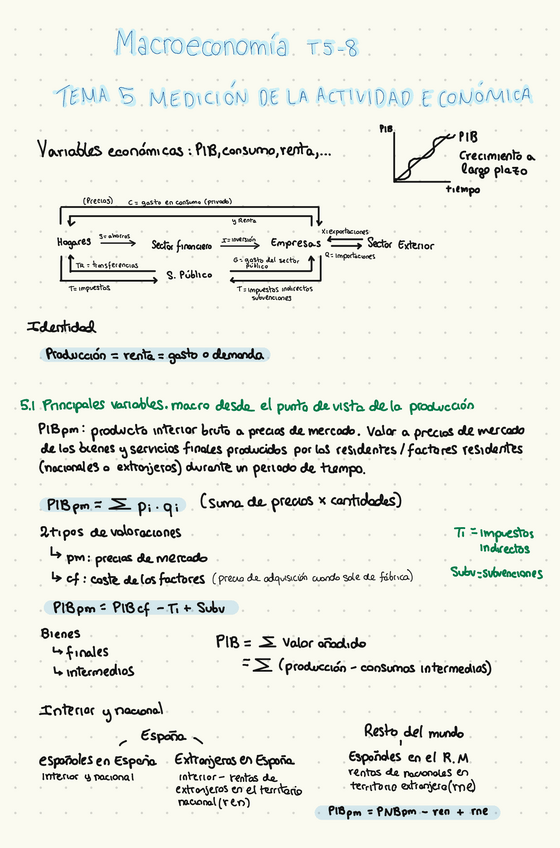 Macroeconomía T5-8
TEMA 5 MEDICIÓN DE LA ACTIVIDAD ECONÓMICA
Variables económicas: PIB, consumo, renta,...
PIB
PIB
Crecimiento a
largo plazo
tiempo
(Precios) C = gasto en consumo (privado)
y Renta
Hogares S=ahorros Sector financiero I=inversión Empresas X=exportaciones Sector Exterior
Q=importaciones
TR=transferencias S. Público G=gasto del sector
público
T=impuestos
T=impuestos indirectos
subvenciones
Identidad
Producción = renta = gasto o demanda
5.1 Principales variables. macro desde el punto de vista de la producción
PIBpm: producto interior bruto a precios de mercado. Valor a precios de mercado
de los bienes y servicios finales producidos por los residentes/factores residentes
(nacionales o extranjeros) durante un periodo de tiempo.
PIBpm = Σ pi · qi (suma de precios x cantidades)
2 tipos de valoraciones
↳ pm: precios de mercado
↳ cf: coste de los factores (precio de adquisición cuando sale de fábrica)
Ti = impuestos
indirectos
Subv=subvenciones
PIBpm = PIBcf - Ti + Subv
Bienes
↳ finales
↳ intermedios
PIB = Σ Valor añadido
= Σ (producción - consumos intermedios)
Interior y nacional
España
españoles en España
interior y nacional
Extranjeros en España
interior - rentas de
extranjeros en el territorio
nacional (ren)
Resto del mundo
Españoles en el R.M
rentas de nacionales en
territorio extranjero (rne)
PIBpm = PNBpm - ren + rne